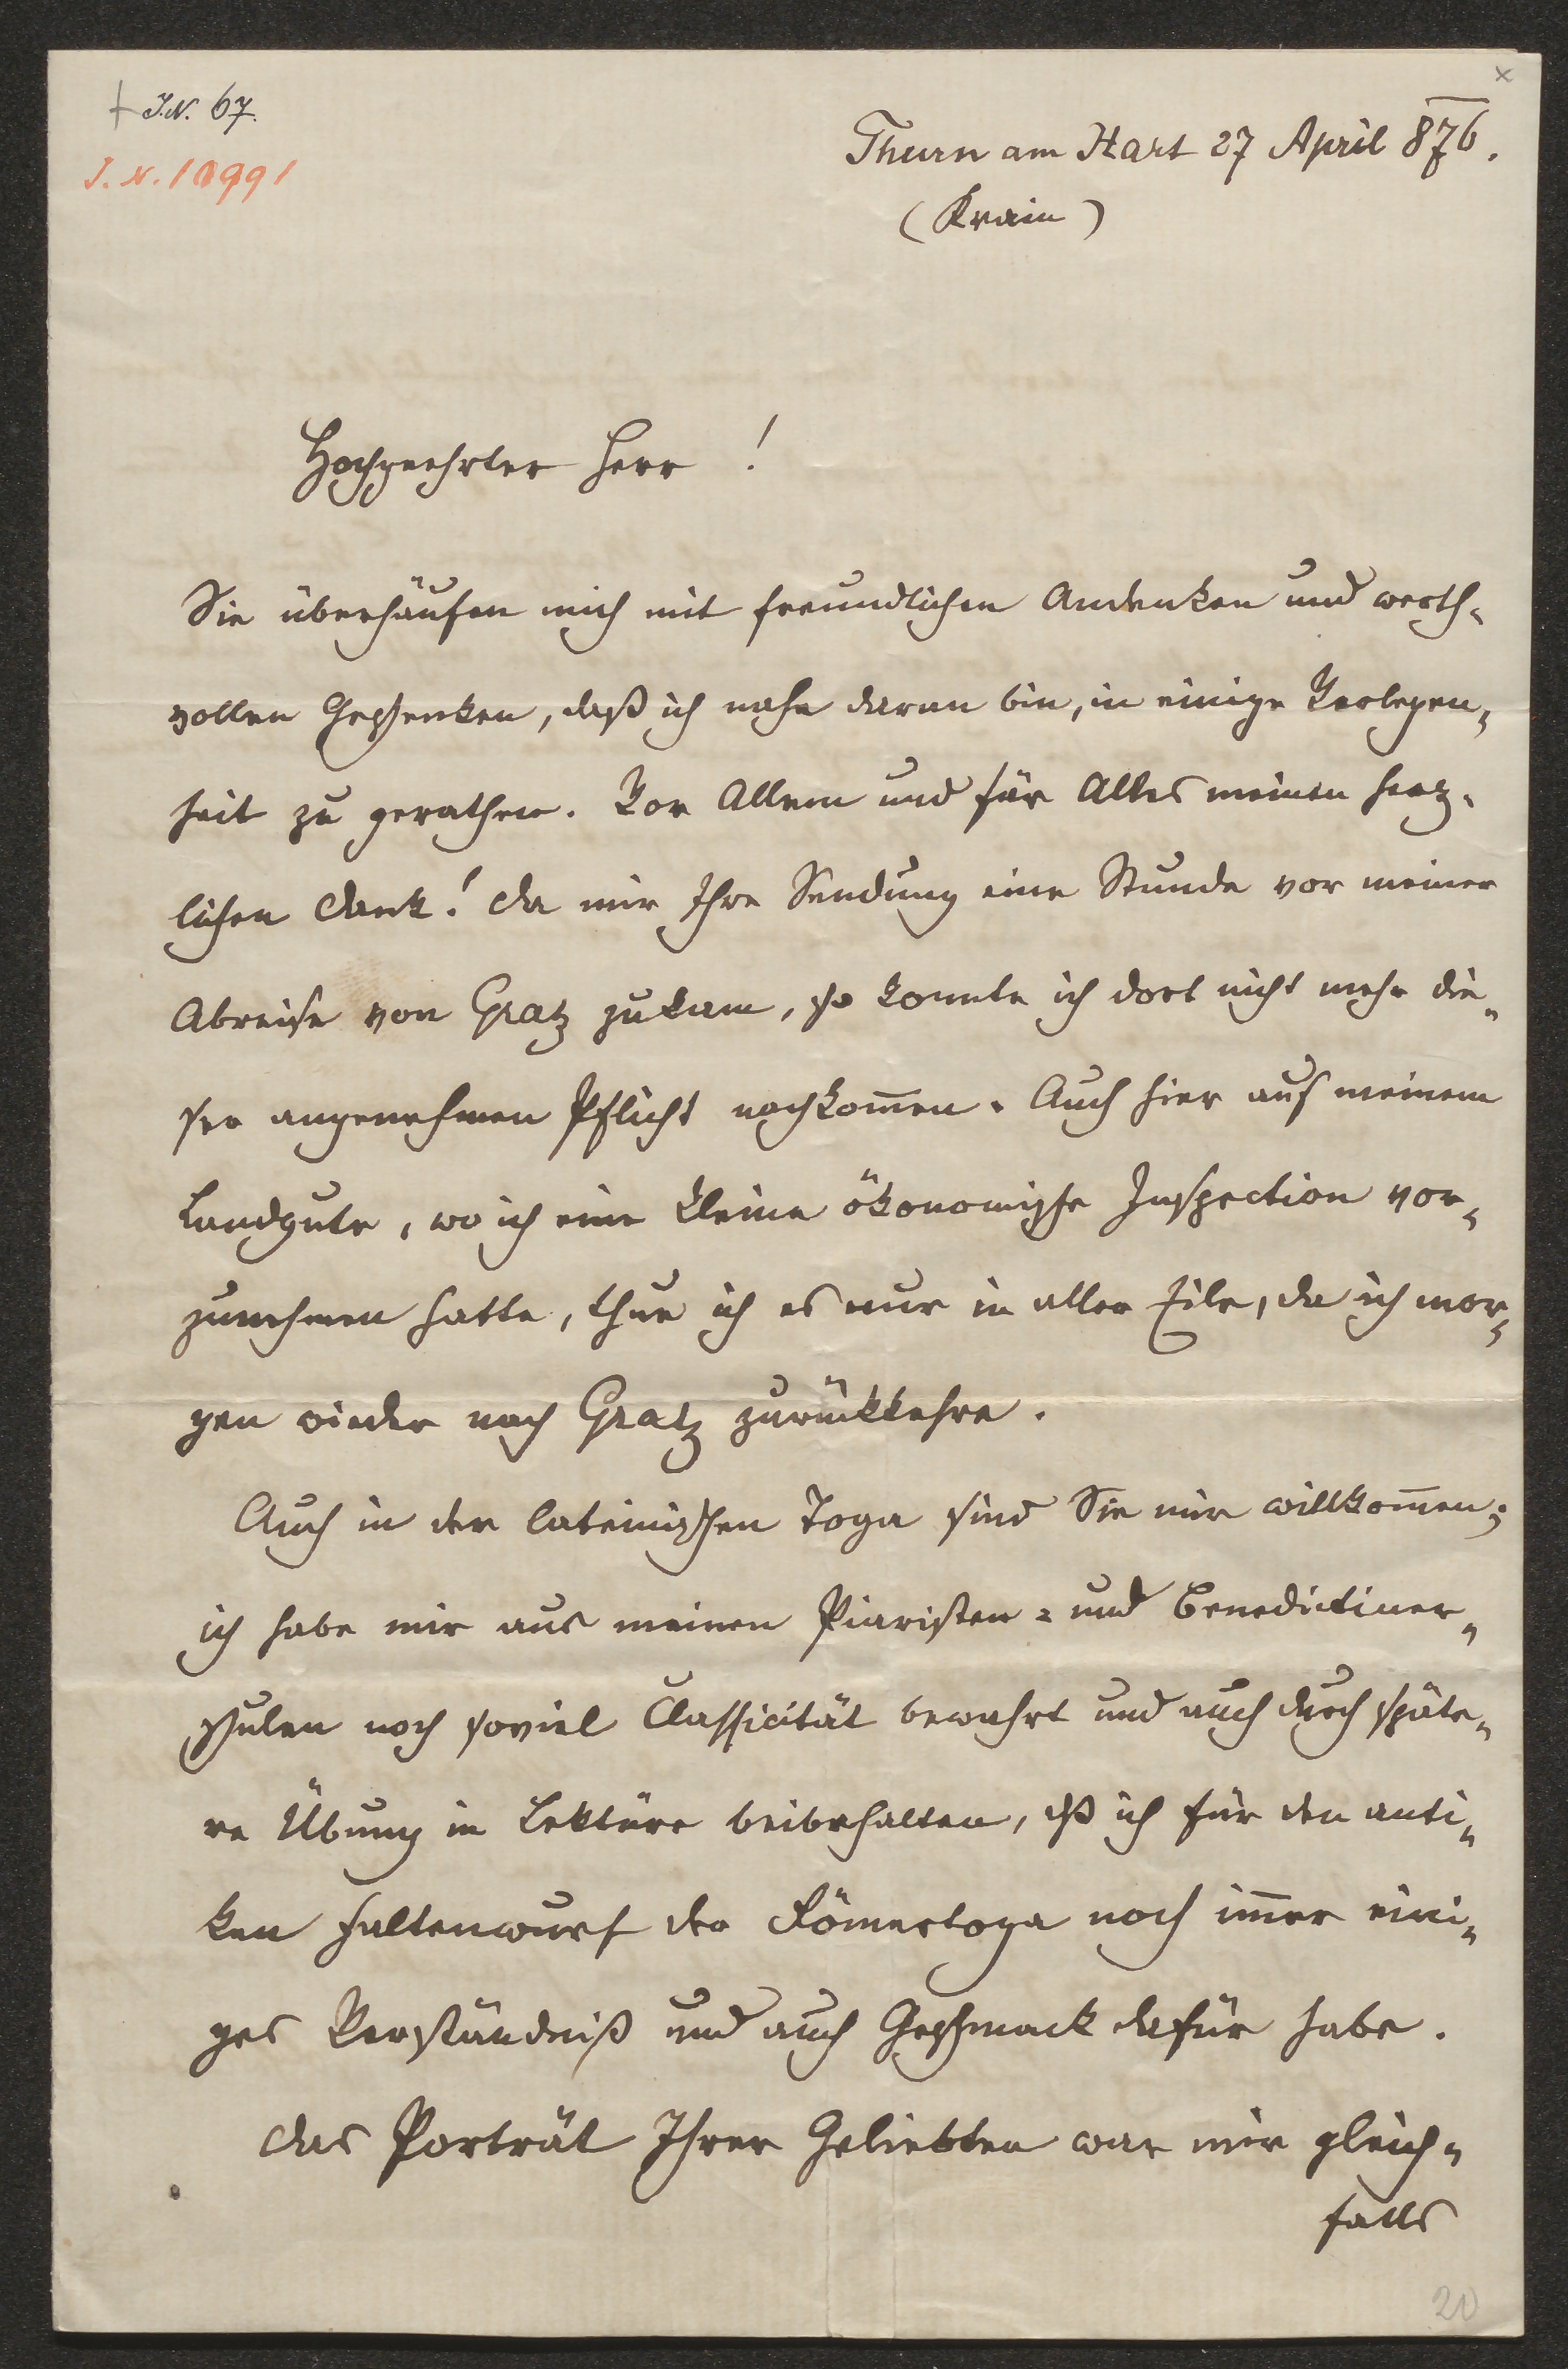 J.N. 67.
J.N. 10991
x
Thurn am Hart 27 April 876.
(Krain)
Hochgeehrter Herr !
Sie überhäufen mich mit freundlichen Andenken und werth-
vollen Geschenken, daß ich nahe daran bin, in einige Verlegen-
heit zu gerathen. Vor Allem und für Alles meinen herz-
lichen Dank! Da mir Ihre Sendung eine Stunde vor meiner
Abreise von Gratz zukam, so konnte ich dort nicht mehr die-
ser angenehmen Pflicht nachkom̅en. Auch hier auf meinem
Landgute, wo ich eine kleine ökonomische Inspection vor-
zunehmen hatte, thue ich es nur in aller Eile, da ich mor-
gen wieder nach Gratz zurückkehre.
Auch in der lateinischen Toga sind Sie mir willkom̅en;
ich habe mir aus meinen Piaristen- und Benedictiner-
schulen noch soviel Classicität bewahrt und auch durch späte-
re Übung in Lektüre beibehalten, dß ich für den anti-
ken Faltenwurf der Römertoga noch im̅er eini-
ges Verständniß und auch Geschmack dafür habe.
Das Porträt Ihrer Geliebten war mir gleich-
falls
20